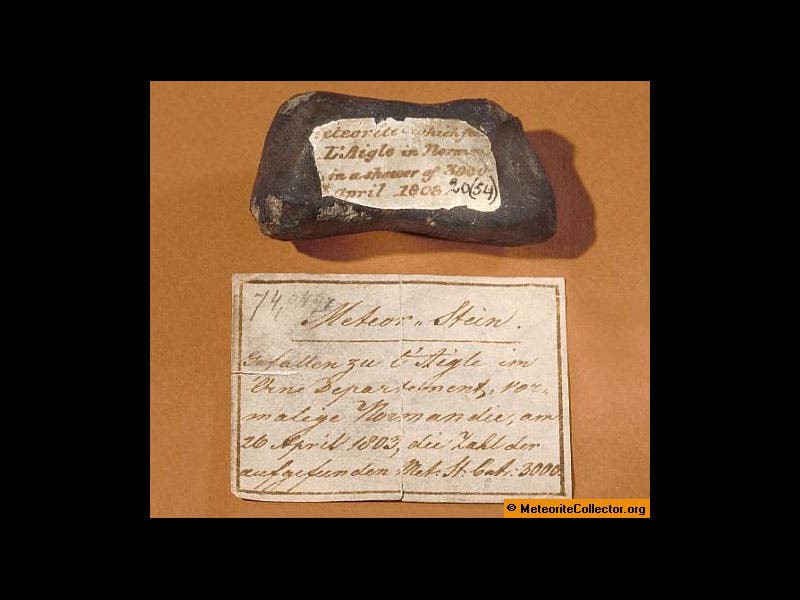 eteorite which fe
L'Aigle in Norman
in a shower of 3000
april 1803
20(54)
74,
Meteor-Stein.
Gefallen zu l'Aigle im
Orne Departement, vor-
malige Normandie, am
26 April 1803, die Zahl der
aufgefunden Met. St. 3000.
© MeteoriteCollector.org